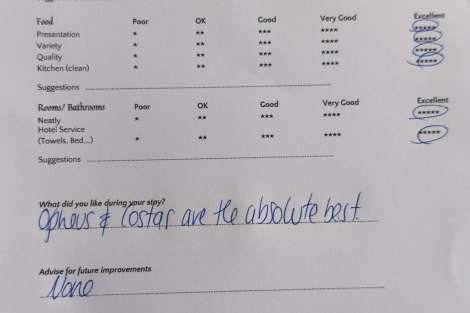 Food Poor OK Good Very Good Excellent
Presentation * ** *** **** *****
Variety * ** *** **** *****
Quality * ** *** **** *****
Kitchen (clean) * ** *** **** *****
Suggestions
Rooms/ Bathrooms Poor OK Good Very Good Excellent
Neatly * ** *** **** *****
Hotel Service
(Towels, Bed,...) * ** *** **** *****
Suggestions
What did you like during your stay?
Opheus & Costar are the absolute best
Advise for future improvements
None